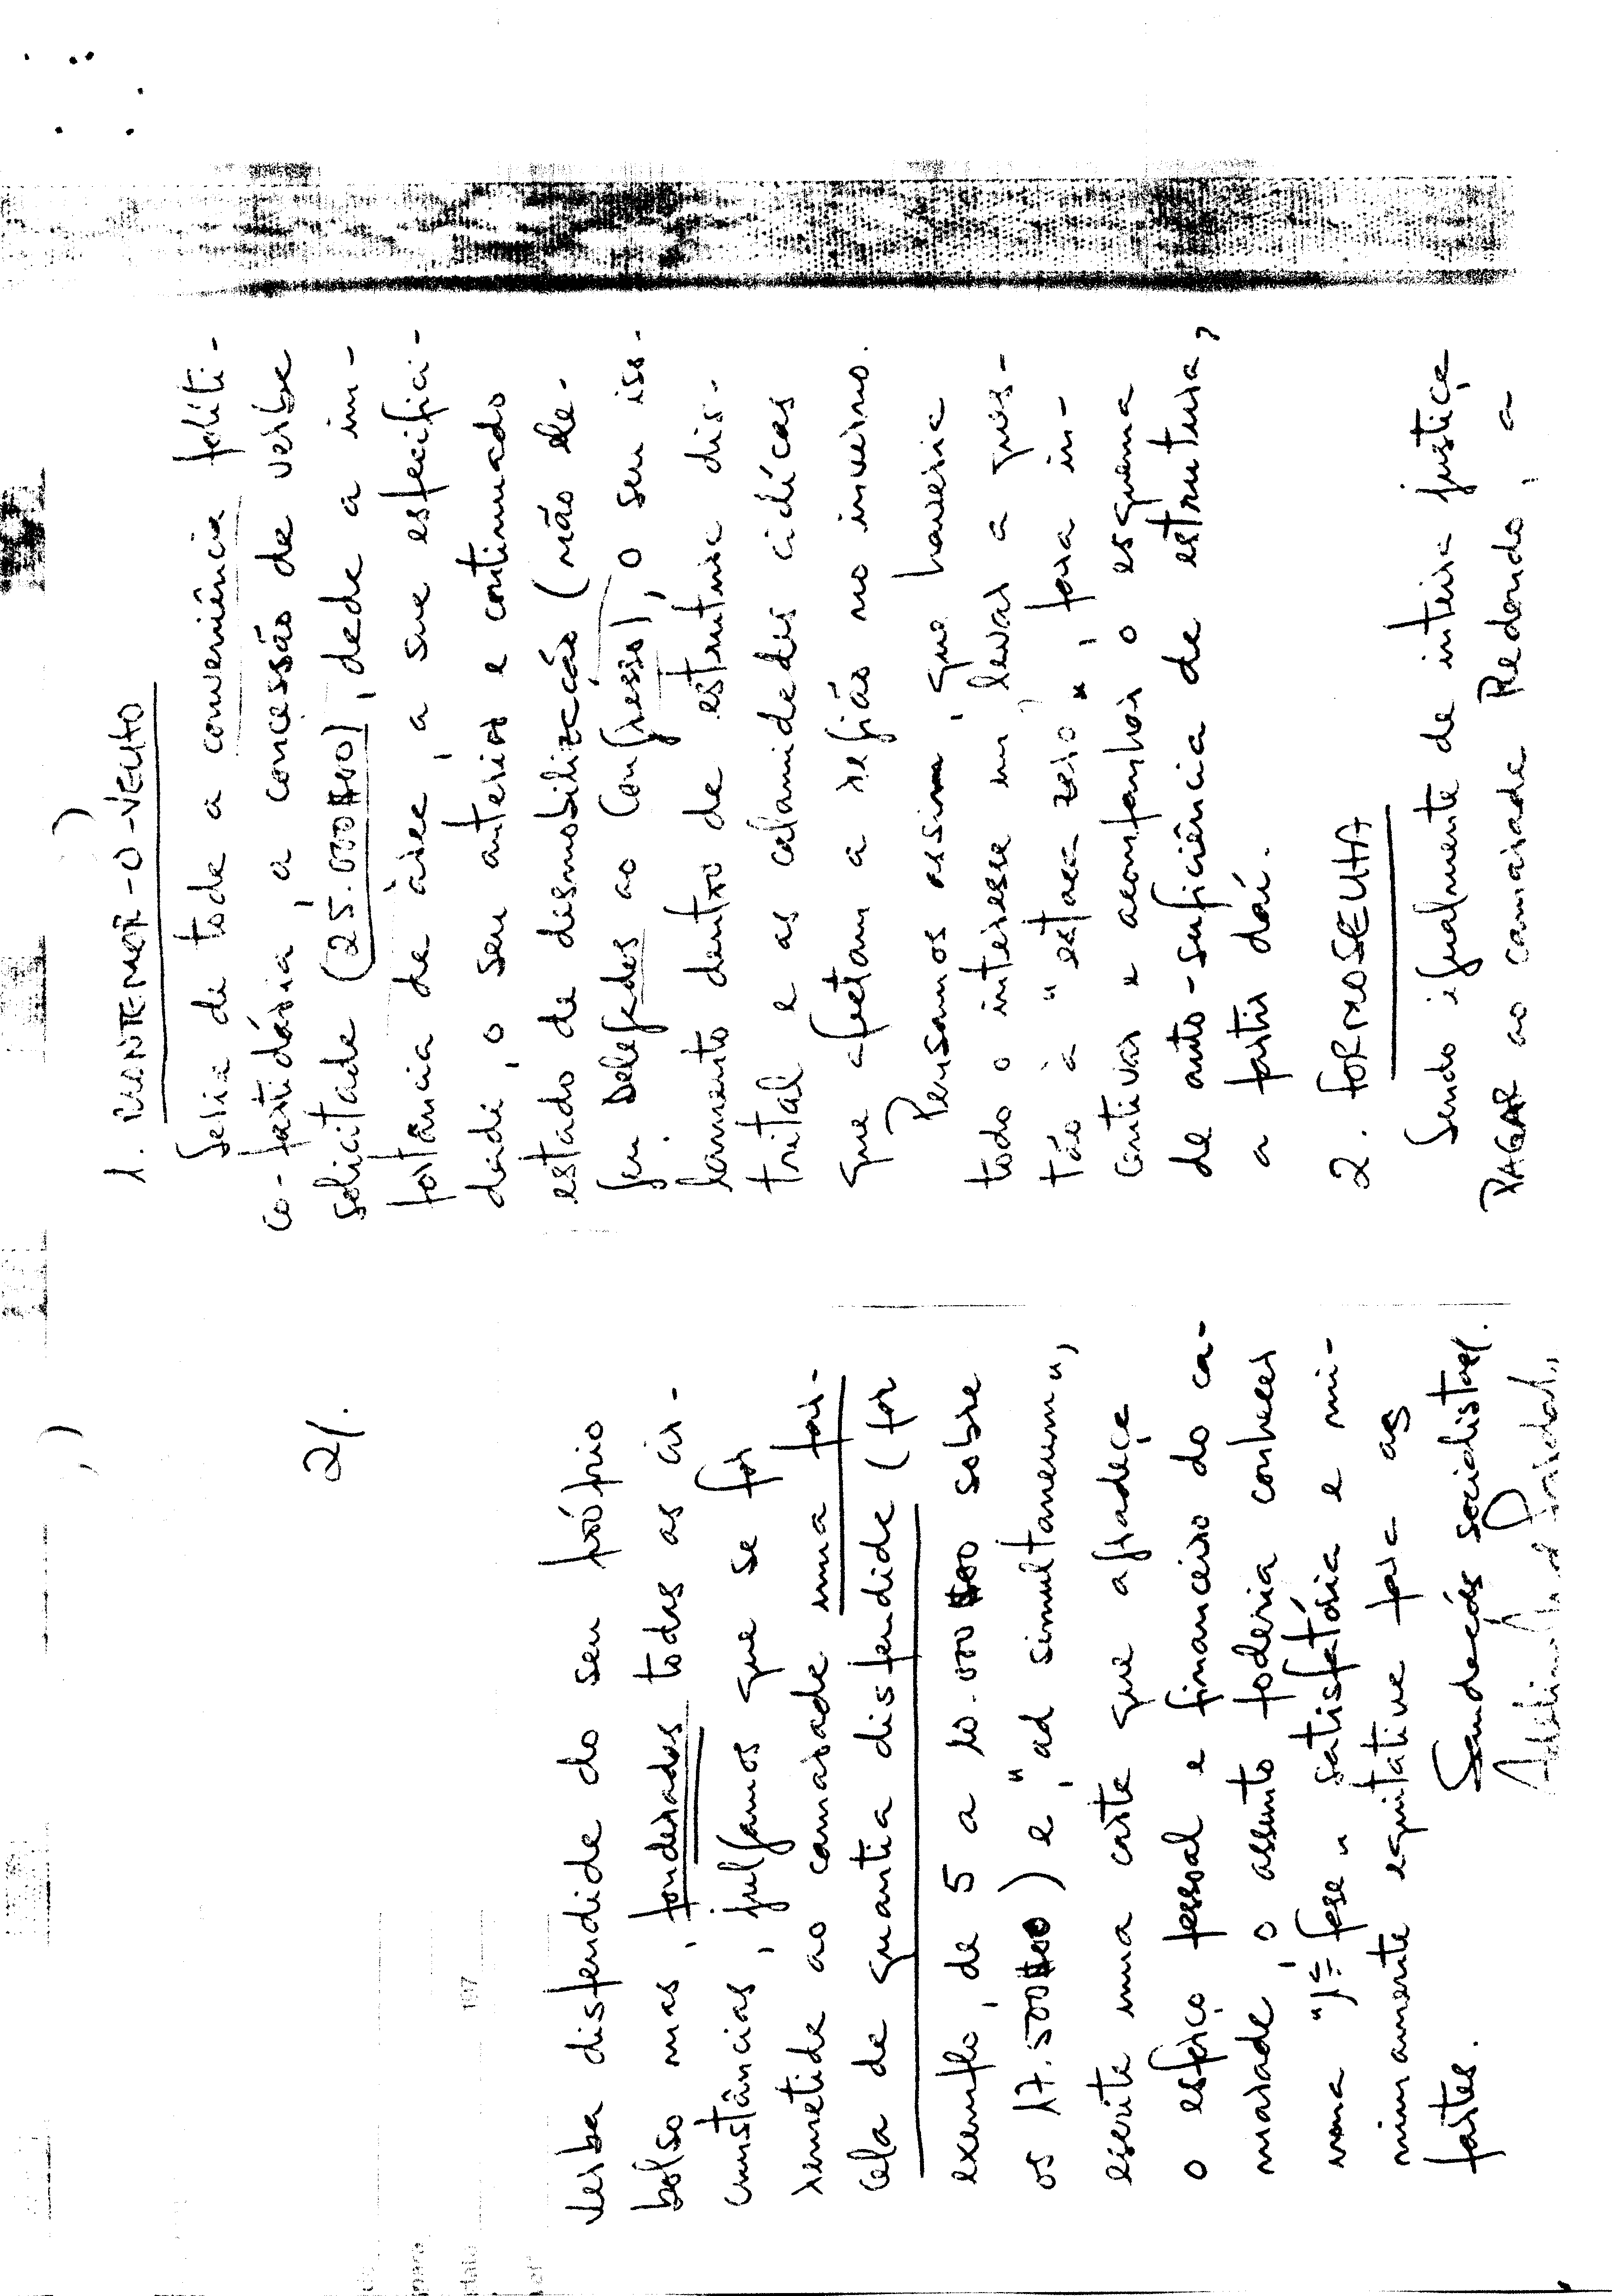 1. MONTEMOR-O-VELHO
Seria de toda a conveniência políti-
co-partidária, a concessão de verba
solicitada (25.000$00), dada a im-
portância da área, a sua especifici-
dade, o seu anterior e continuado
estado de desmobilização (não ele-
geu Delegados ao Congresso), o seu iso-
lamento dentro da estrutura dis-
trital e as calamidades cíclicas
que afectam a região no inverno.
Pensamos assim, que haveria
todo o interesse em, levar a ques-
tão à "estaca zero", para in-
centivar e acompanhar o esquema
de auto-suficiência da estrutura,
a partir daí.
2. FORMOSELHA
Sendo igualmente de inteira justiça
PAGAR ao camarada Redondo, a
2/.
verba dispendida do seu próprio
bolso mas, ponderadas todas as cir-
cunstâncias, julgamos que se for
remetida ao camarada uma par-
cela da quantia dispendida (por
exemplo, de 5 a 10.000$00 sobre
os 17.500$00) e, "ad simultaneum",
escrita uma carta que agradeça
o esforço pessoal e financeiro do ca-
marada, o assunto poderia conhecer
uma "1ª fase" satisfatória e mi-
nimamente equitativa para as
partes.
Saudações socialistas.